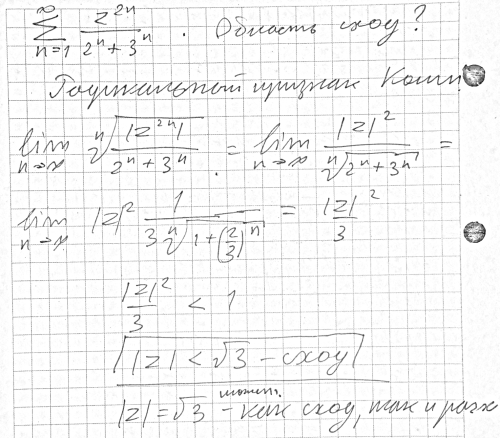 ∞∑n=1 z^{2n} / (2^n + 3^n) . Область сход ?
Радикальный признак Коши
lim n→∞ ⁿ√(|z^{2n}| / (2^n + 3^n)) = lim n→∞ |z|^2 / ⁿ√(2^n + 3^n) =
lim n→∞ |z|^2 1 / (3 ⁿ√(1 + (2/3)^n)) = |z|^2 / 3
|z|^2 / 3 < 1
|z| < √3 – сход
может.
|z| = √3 – как сход, так и расх